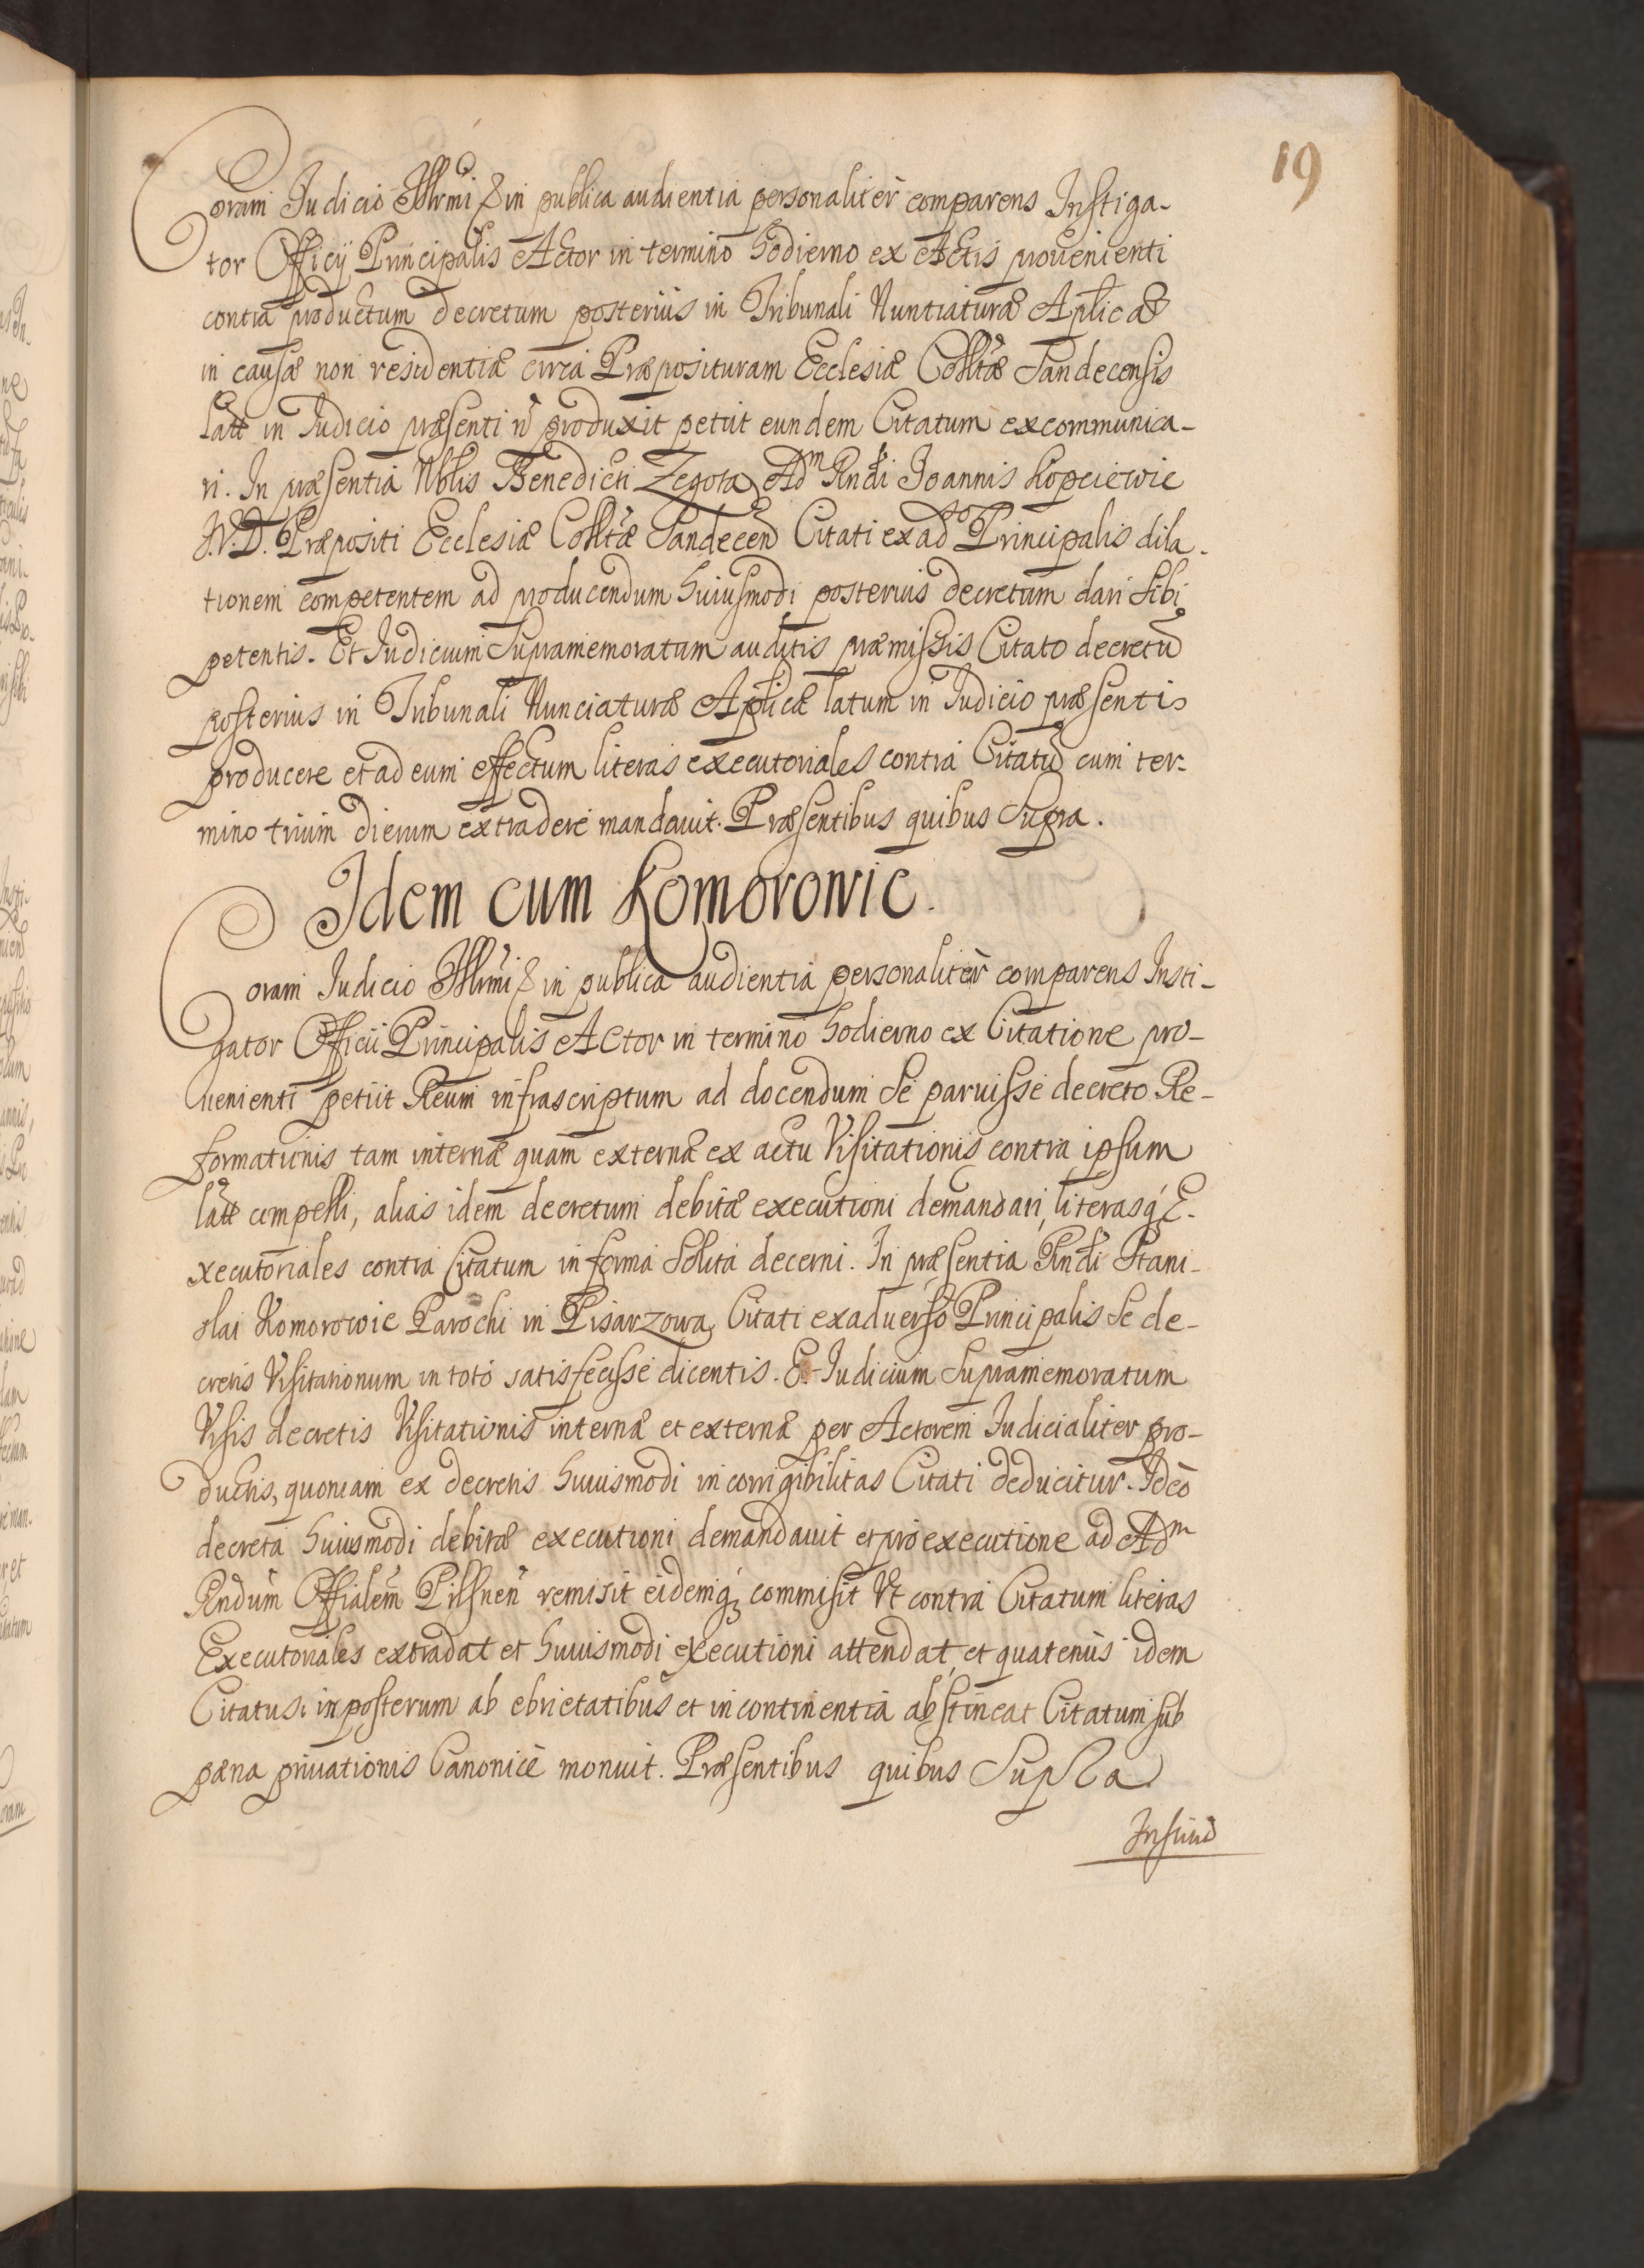 19
Coram Judicio Illrmi & in publica audientia personaliter comparens Instiga-
tor Officÿ Principalis Actor in termino hodierno ex Actis prouenienti
contra productum decretum posterius in Tribunali Nuntiaturæ Aplicæ
in causa non residentiæ circa Præposituram Ecclesiæ Colltæ Sandecensis
latt in Judicio præsenti n produxit petiit eundem Citatum excommunica-
ri. In præsentia Nblis Benedicti Zegota Adm Rndi Joannis Kopciewic
J.V.D. Præpositi Ecclesiæ Colltæ Sandecen Citati ex adso Principalis dila-
tionem competentem ad producendum huiusmodi posterius decretum dari sibi
petentis. Et Judicium Supramemoratum auditis præmissis Citato decretū
posterius in Tribunali Nunciaturæ Aplicæ latum in Judicio præsenti
producere et ad eum effectum literas executoriales contra Citatū cum ter-
mino trium dierum extradere mandauit. Præsentibus quibus Supra.
Idem cum Komorowic.
Coram Judicio Illrmi & in publica audientia personaliter comparens Insti-
gator Officii Principalis Actor in termino hodierno ex Citatione pro-
uenienti petiit Reum infrascriptum ad docendum se paruisse decreto Re-
formationis tam internæ quam externæ ex actu Visitationis contra ipsum
latt compelli, alias idem decretum debitæ executioni demandari, literasq́ E-
xecutoriales contra Citatum in forma solita decerni. In præsentia Rndi Stani-
slai Komorowic Parochi in Pisarzowa Citati ex aduerso Principalis se de-
cretis Visitationum in toto satisfecisse dicentis. Et Judicium Supramemoratum
Visis decretis Visitationis internæ et externæ per Actorem Judicialiter pro-
ductis, quoniam ex decretis huiusmodi incorrigibilitas Citati deducitur. Ideo
decreta huiusmodi debitæ executioni demandauit et pro executione ad Adm
Rndum Offialem Pilsnen remisit eidemq́ commisit Vt contra Citatum literas
Executoriales extradat et huiusmodi executioni attendat, et quatenus idem
Citatus in posterum ab ebrietatibus et incontinentia abstineat Citatum sub
pæna priuationis Canonice monuit. Præsentibus quibus Supra